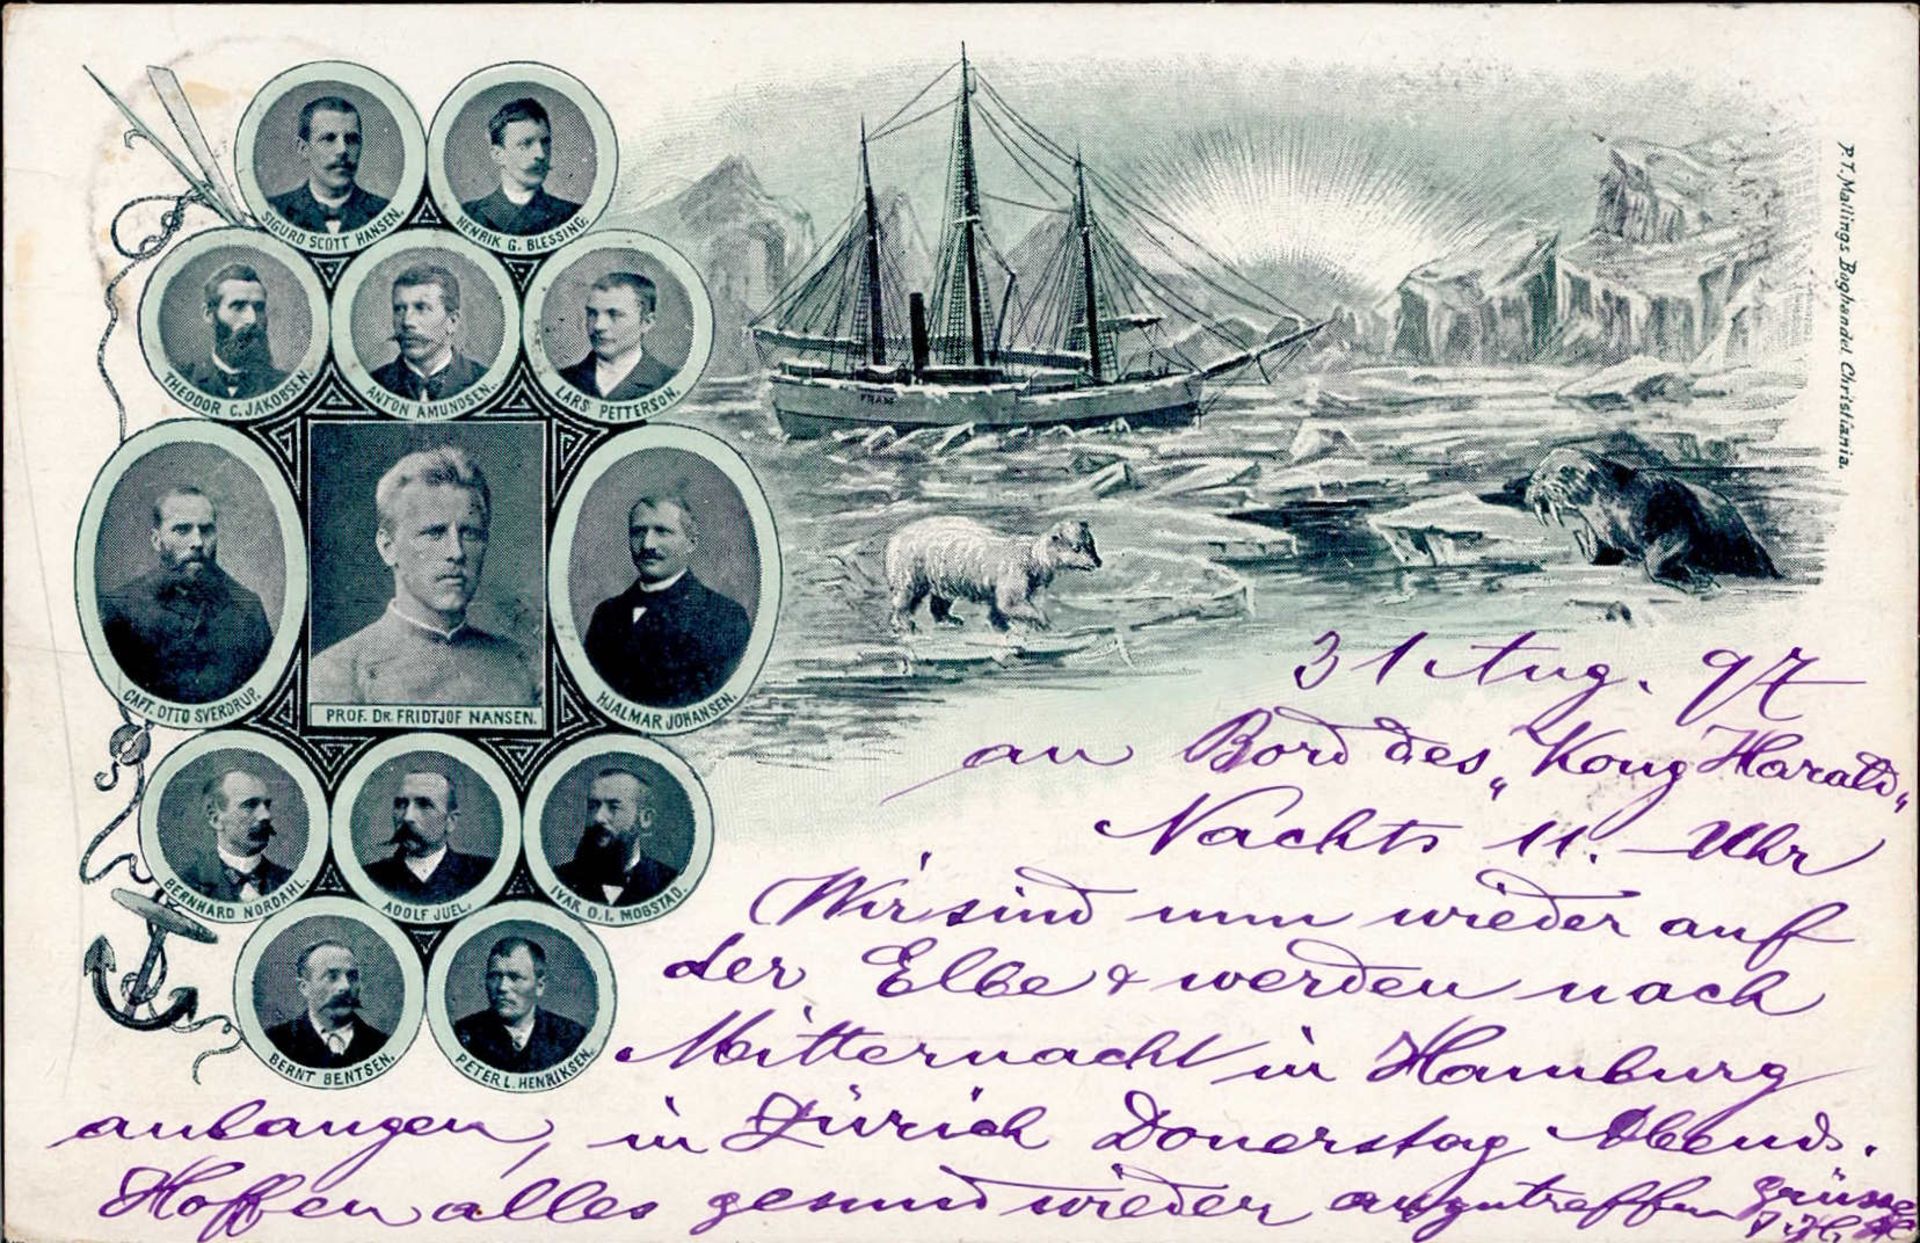 SIGURD SCOTT HANSEN.
HENRIK G. BLESSING.
THEODOR C. JAKOBSEN.
ANTON AMUNDSEN.
LARS PETTERSON.
CAPT. OTTO SVERDRUP.
PROF. DR. FRIDTJOF NANSEN.
HJALMAR JOHANSEN.
BERNHARD NORDAHL.
ADOLF JUEL.
IVAR O. I. MOGSTAD.
BERNT BENTSEN.
PETER L. HENRIKSEN.
FRAM
P. T. Mallings Boghandel Christiania.
31 Aug. 97
an Bord des „Kong Harald„
Nachts 11. Uhr
Wir sind nun wieder auf
der Elbe & werden nach
Mitternacht in Hamburg
anlangen, in Zürich Donerstag Abend.
Hoffen alles gesund wieder anzutreffen Grüsse